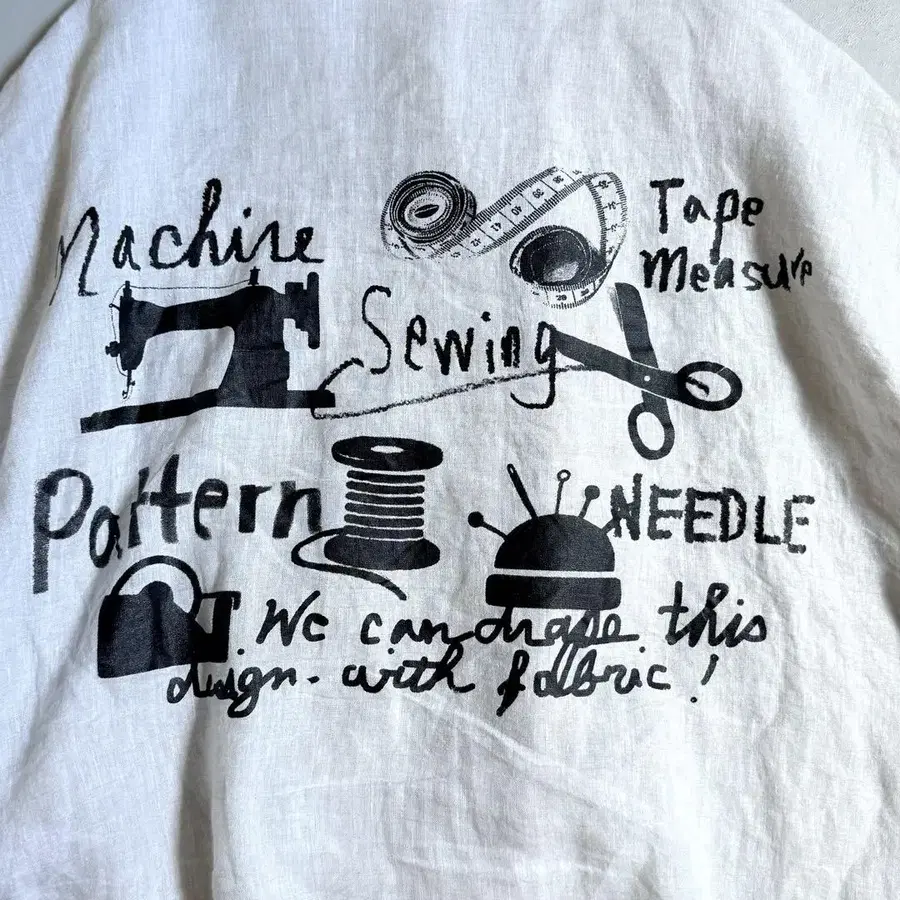 Machine
Tape
Measure
Sewing
Pattern
NEEDLE
We can drape this
design. with fabric!